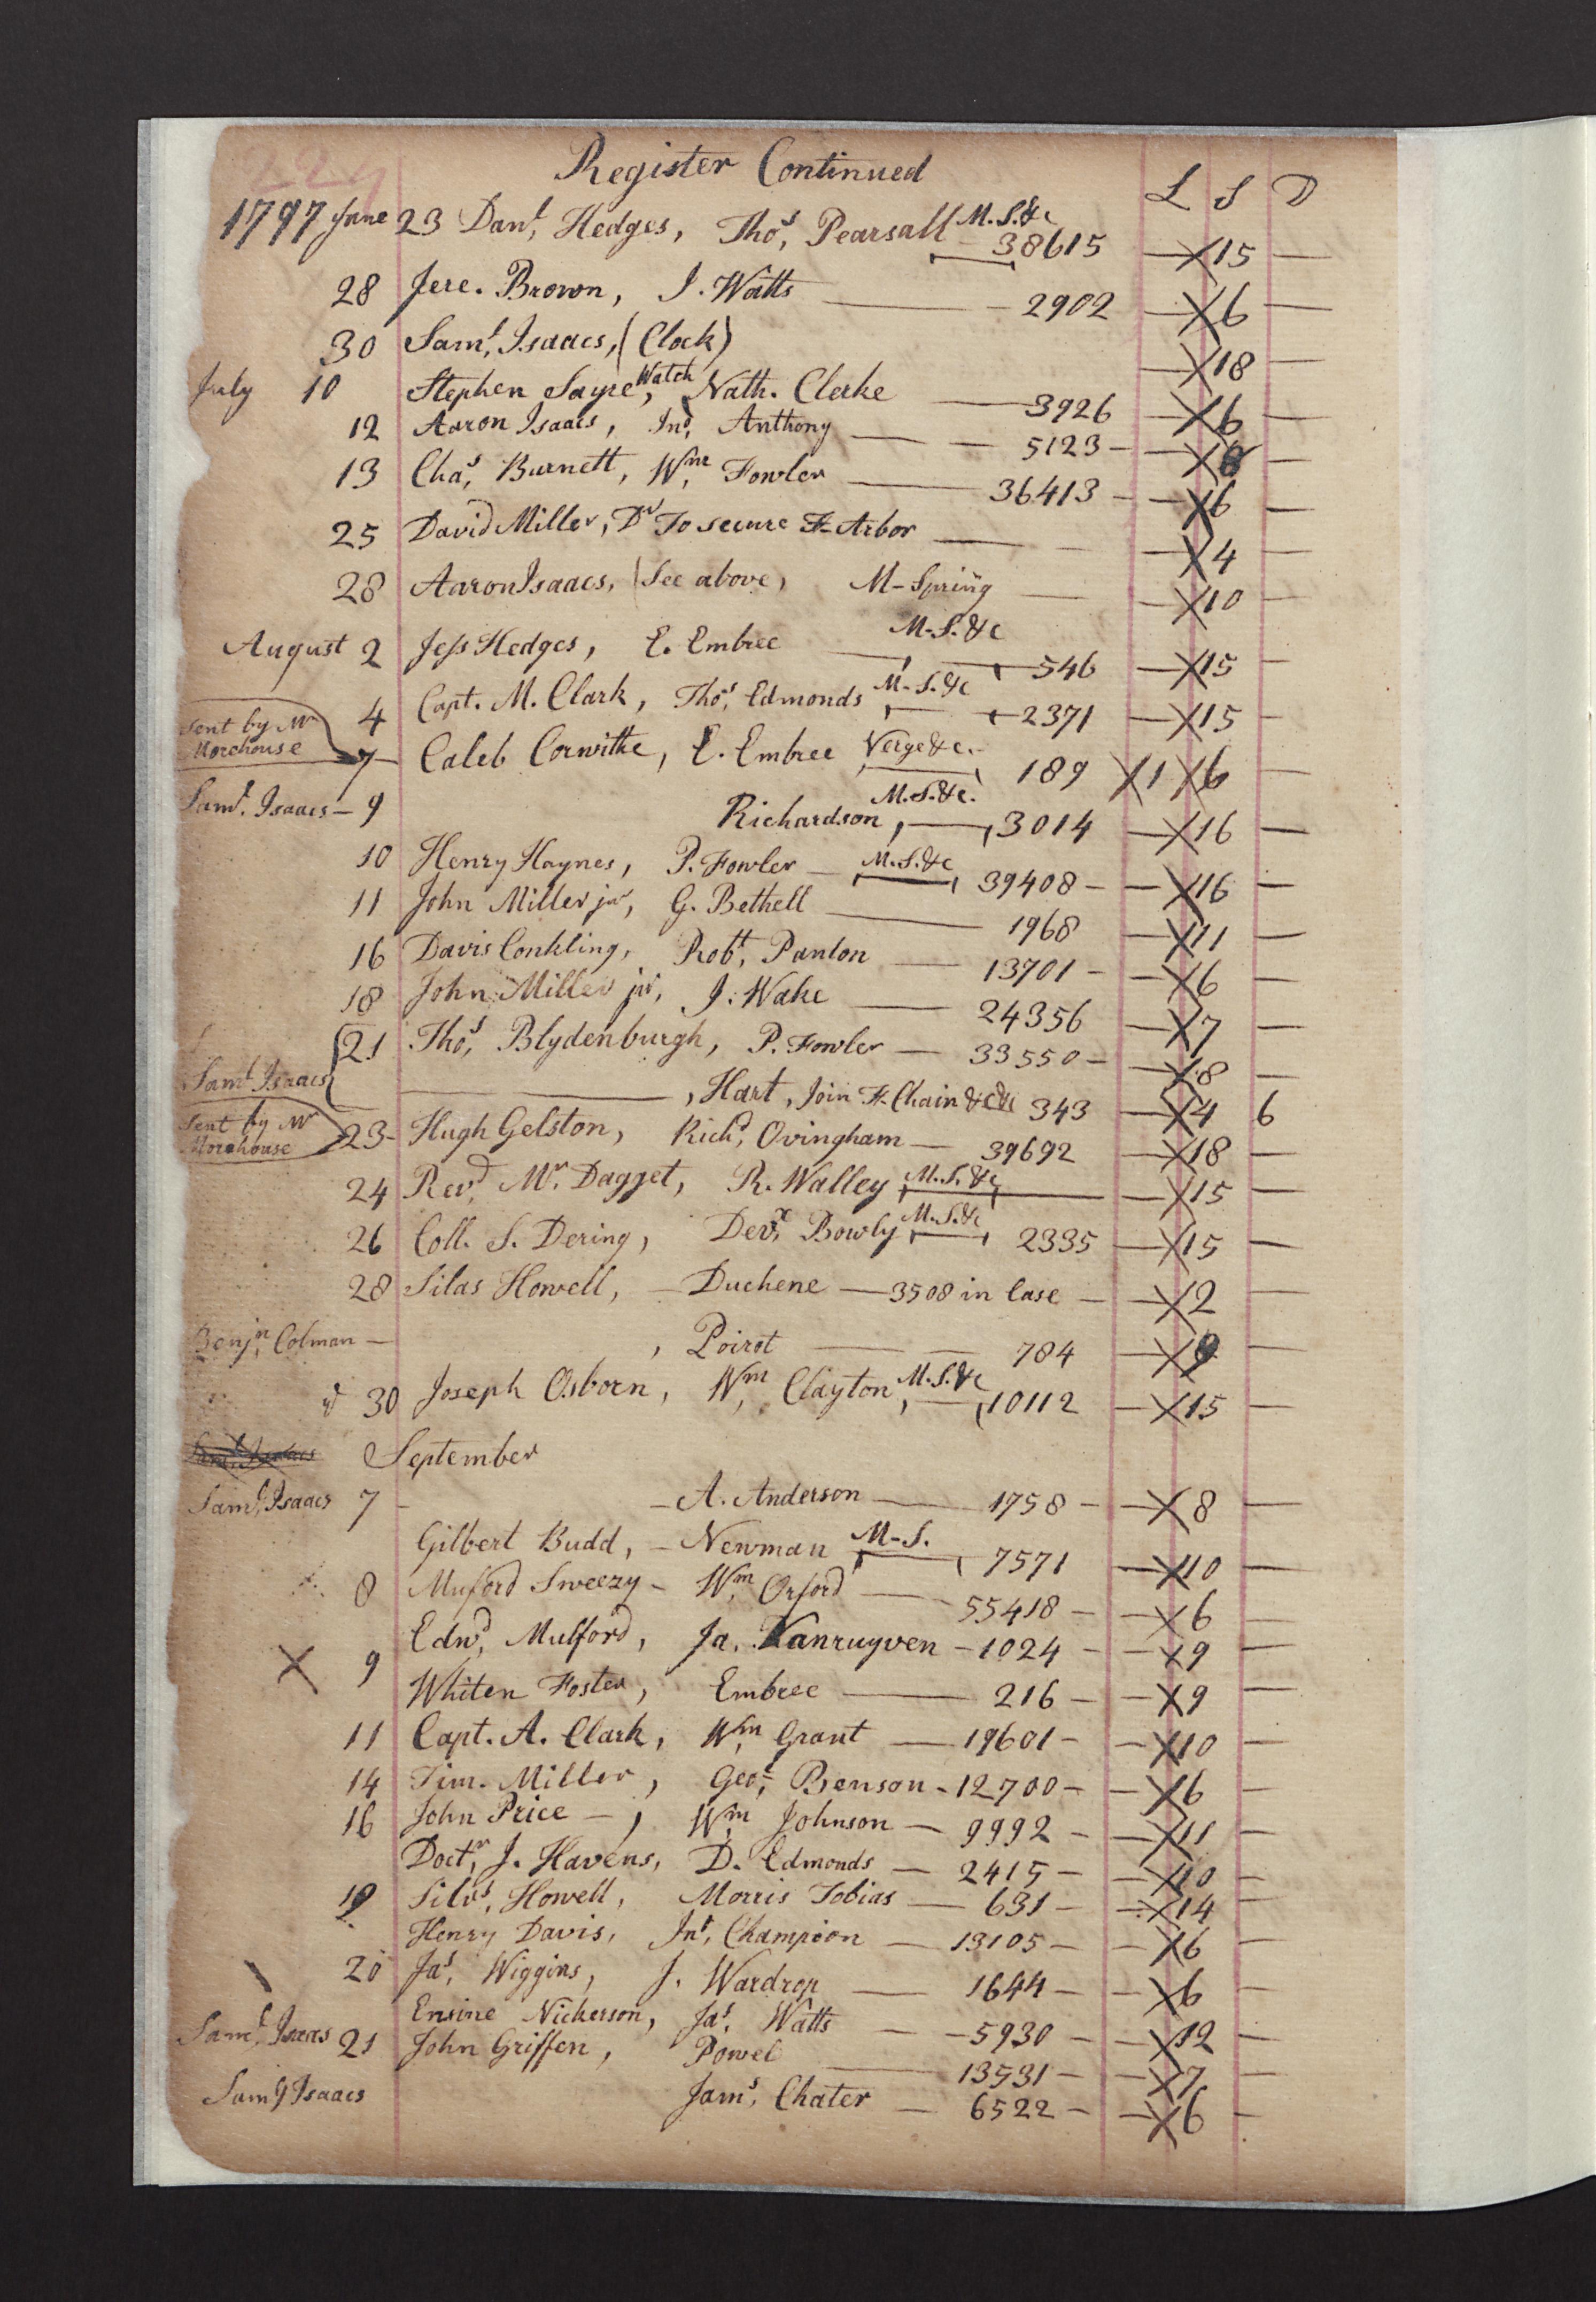 Register Continued
L S D
1797 June 23 Danl, Hedges, Thos, Pearsall M.S.&c 38615 — X 15 —
28 Jere. Brown, J. Watts — 2902 — X 6 —
30 Saml, Isaacs, (Clock) — X 18 —
July 10 Stephen Sayre Watch, Nath. Clerke — 3926 — X 6 —
12 Aaron Isaacs, Jno, Anthony — 5123 — X 8 —
13 Chas, Burnett, Wm, Fowler — 36413 — X 6 —
25 David Miller, Dr To secure F-Arbor — X 4 —
28 Aaron Isaacs, (See above, M-Spring — X 10 —
August 2 Jess Hedges, E. Embree M-S.&c 546 — X 15 —
4 Capt. M. Clark, Thos, Edmonds M-S.&c 2371 — X 15 —
sent by Mr
Morehouse
7 Caleb Corwithe, E. Embree Verge&c. 189 X 1 X 6 —
Saml. Isaacs — 9 Richardson, M.S.&c. 3014 — X 16 —
10 Henry Haynes, P. Fowler — M.S.&c 39408 — X 16 —
11 John Miller jur, G. Bethell — 1968 — X 11 —
16 Davis Conkling, Robt, Panton — 13701 — X 6 —
18 John Miller jur, J. Wake — 24356 — X 7 —
21 Thos, Blydenburgh, P. Fowler — 33550 — X 8 —
Saml Isaacs — , Hart, Join F-Chain &c 343 — X 4 6
sent by Mr
Morehouse
23 Hugh Gelston, Richd, Ovingham — 39692 — X 18 —
24 Revd, Mr. Dagget, R. Walley M.S.&c — X 15 —
26 Coll. S. Dering, Devx, Bowly M.S.&c 2335 — X 15 —
28 Silas Howell, — Duchene — 3508 in Case — X 2 —
Benjn, Colman — , Poirot — 784 — X 9 —
30 Joseph Osborn, Wm, Clayton, M.S.&c 10112 — X 15 —
Saml, Isaacs September
Saml, Isaacs 7 — A. Anderson — 1758 — X 8 —
Gilbert Budd, — Newman M-S. 7571 — X 10 —
8 Muford Sweezy — Wm, Orford — 55418 — X 6 —
Edwd, Mulford, Ja. Vanruyven — 1024 — X 9 —
X 9 Whiten Foster, Embree — 216 — X 9 —
11 Capt. A. Clark, Wm, Grant — 19601 — X 10 —
14 Tim. Miller, Geo, Benson — 12700 — X 6 —
16 John Price —, Wm, Johnson — 9992 — X 11 —
Doctr, J. Havens, D. Edmonds — 2415 — X 10 —
19 Silvs, Howell, Morris Tobias — 631 — X 14 —
Henry Davis, Jnt, Champion — 13105 — X 6 —
20 Jas, Wiggins, J. Wardrop — 1644 — X 6 —
Ensine Nickerson, Jas, Watts — 5930 — X 12 —
Saml, Isaacs 21 John Griffen, Powel — 13531 — X 7 —
Saml, Isaacs Jams, Chater — 6522 — X 6 —